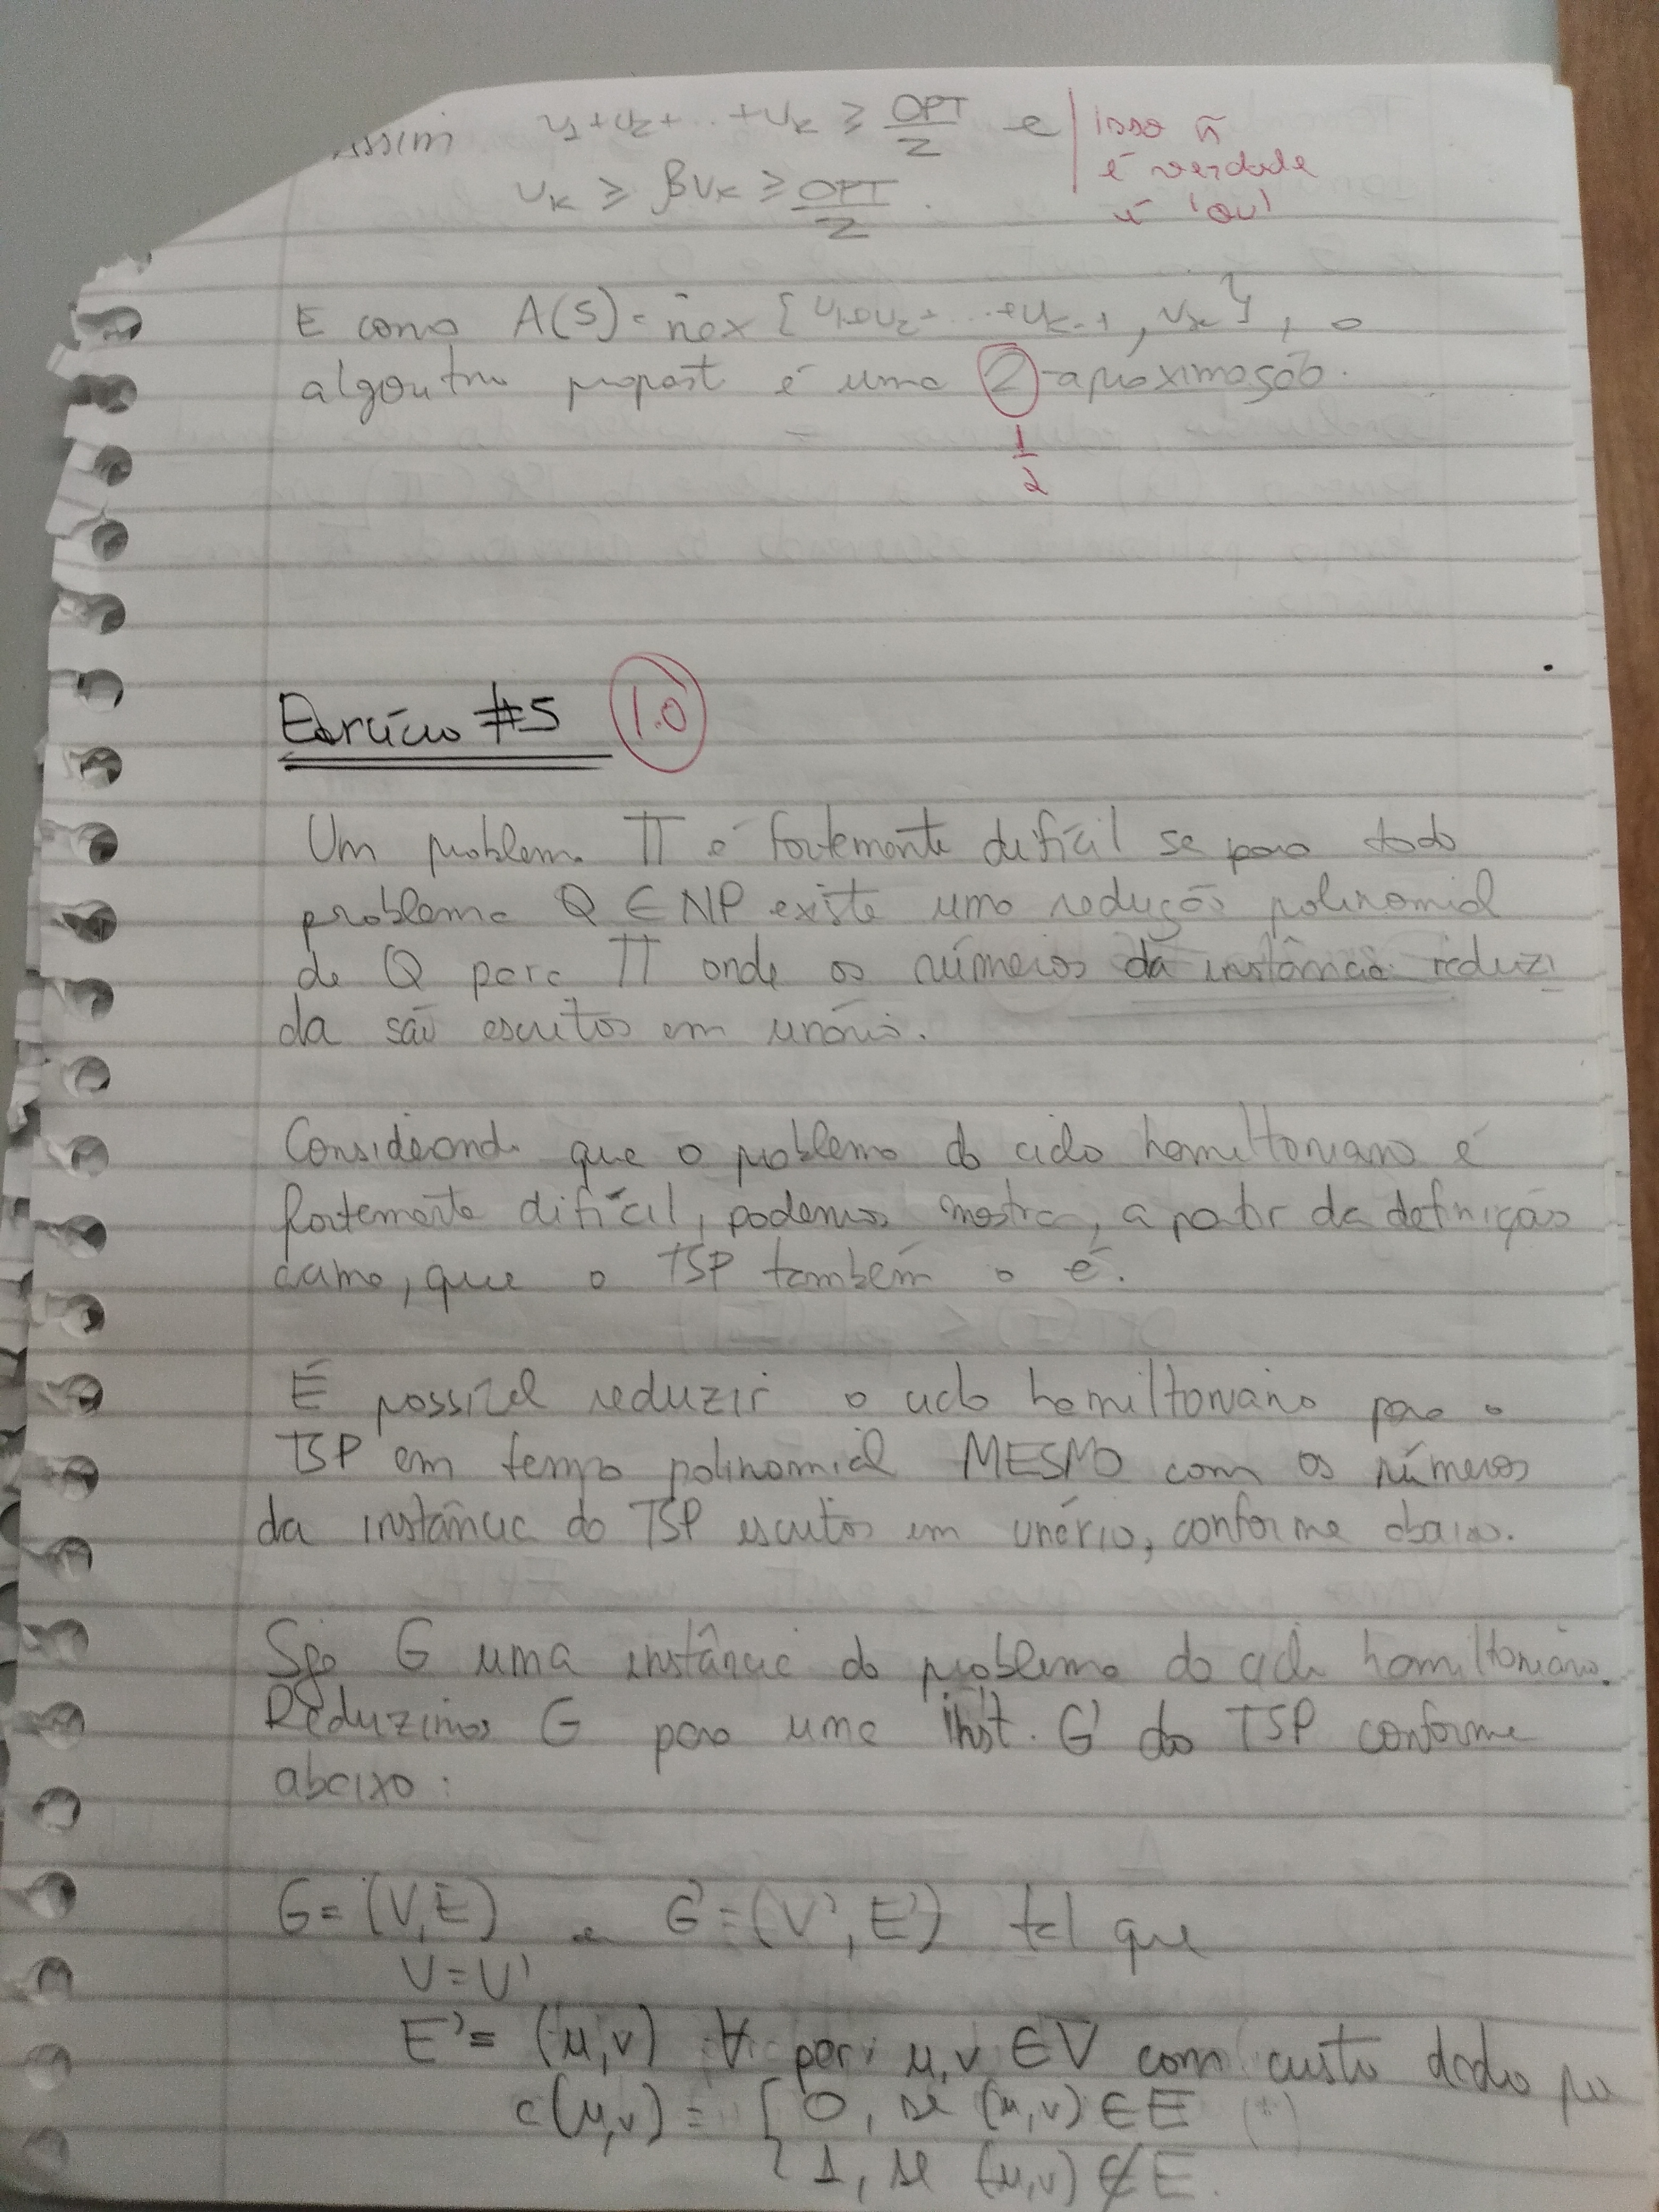 Assim v1+v2+...+vk ≥ OPT/2 e | isso ñ
é verdade
é 'ou'
vk ≥ βvk ≥ OPT/2.
E como A(S) = max {v1+v2+...+vk-1, vk}, o
algoritmo propost é uma 2-aproximação.
1/2
Exercício #5 1.0
Um problema Π é fortemente difícil se para todo
problema Q ∈ NP existe uma redução polinomial
de Q para Π onde os números da instância reduzi
da são escritos em unário.
Considerando que o problema do ciclo hamiltoniano é
fortemente difícil, podemos mostrar, a partir da definição
acima, que o TSP também o é.
É possível reduzir o ciclo hamiltoniano para o
TSP em tempo polinomial MESMO com os números
da instância do TSP escritos em unário, conforme abaixo.
Seja G uma instância do problema do ciclo hamiltoniano.
Reduzimos G para uma inst. G' do TSP conforme
abaixo:
G=(V,E) e G'=(V',E') tal que
V=V'
E'= (u,v) ∀ par u,v ∈ V com custo dado po
c(u,v) = { 0, se (u,v) ∈ E (*)
1, se (u,v) ∉ E.